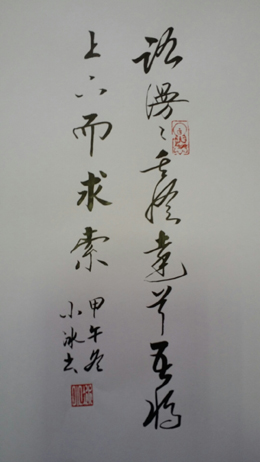 路漫々其修远兮吾将
上下而求索
甲午冬
小冰书